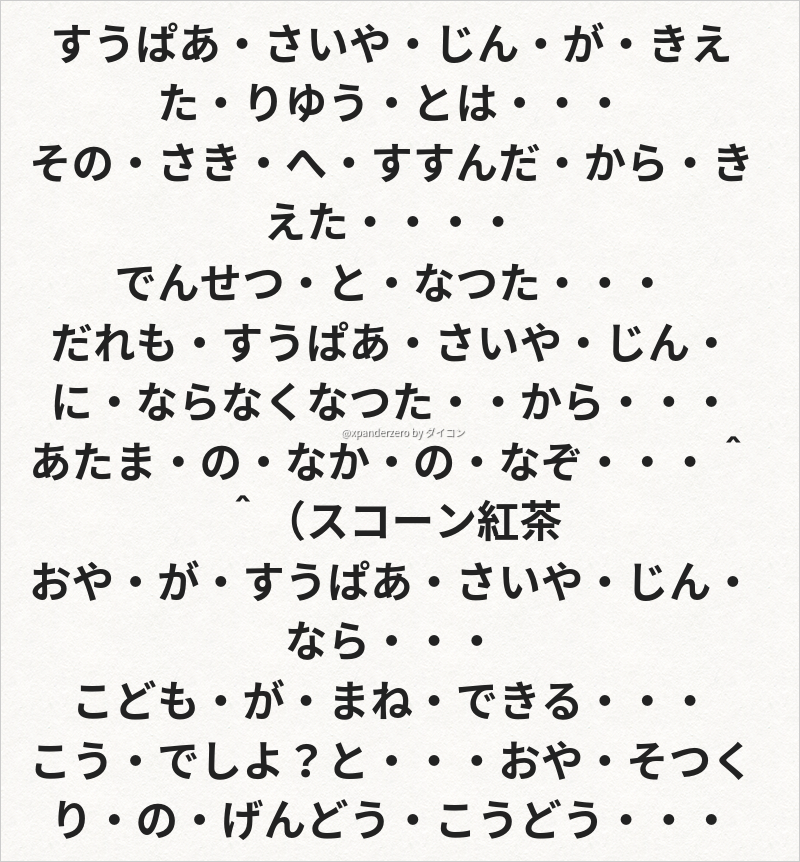 すうぱあ・さいや・じん・が・きえ
た・りゆう・とは・・・
その・さき・へ・すすんだ・から・き
えた・・・・
でんせつ・と・なつた・・・
だれも・すうぱあ・さいや・じん・
に・ならなくなつた・・から・・・
@xpanderzero by ダイコン
あたま・の・なか・の・なぞ・・・＾
＾（スコーン紅茶
おや・が・すうぱあ・さいや・じん・
なら・・・
こども・が・まね・できる・・・
こう・でしよ？と・・・おや・そつく
り・の・げんどう・こうどう・・・